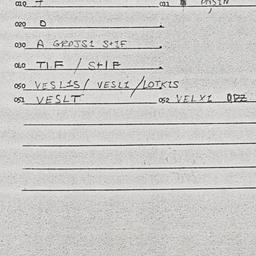 010 T 011
020 O
030 A GROJS1 S+IF
040 TIF / S+IF
050 VESL1S / VESL1 / LOTK1S
051 VESLT 052 VELX1